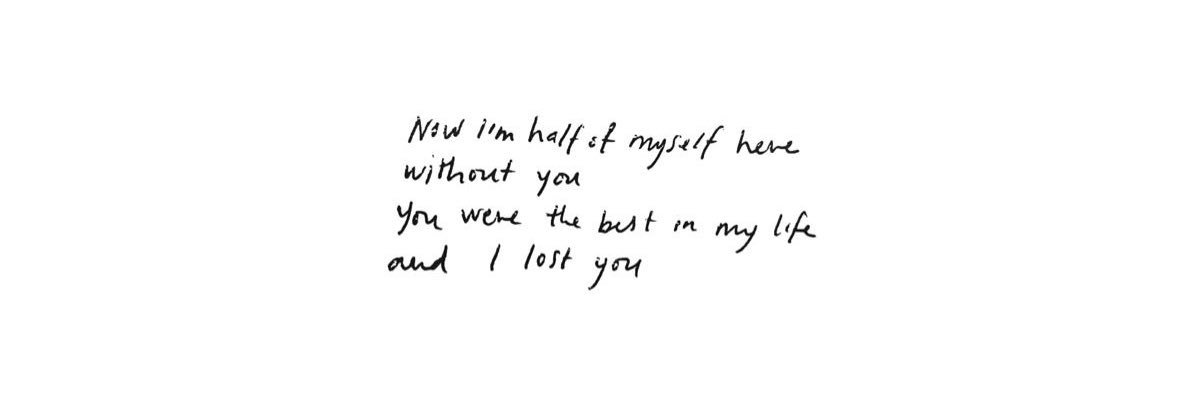 Now i'm half of myself here
without you
You were the best in my life
and I lost you